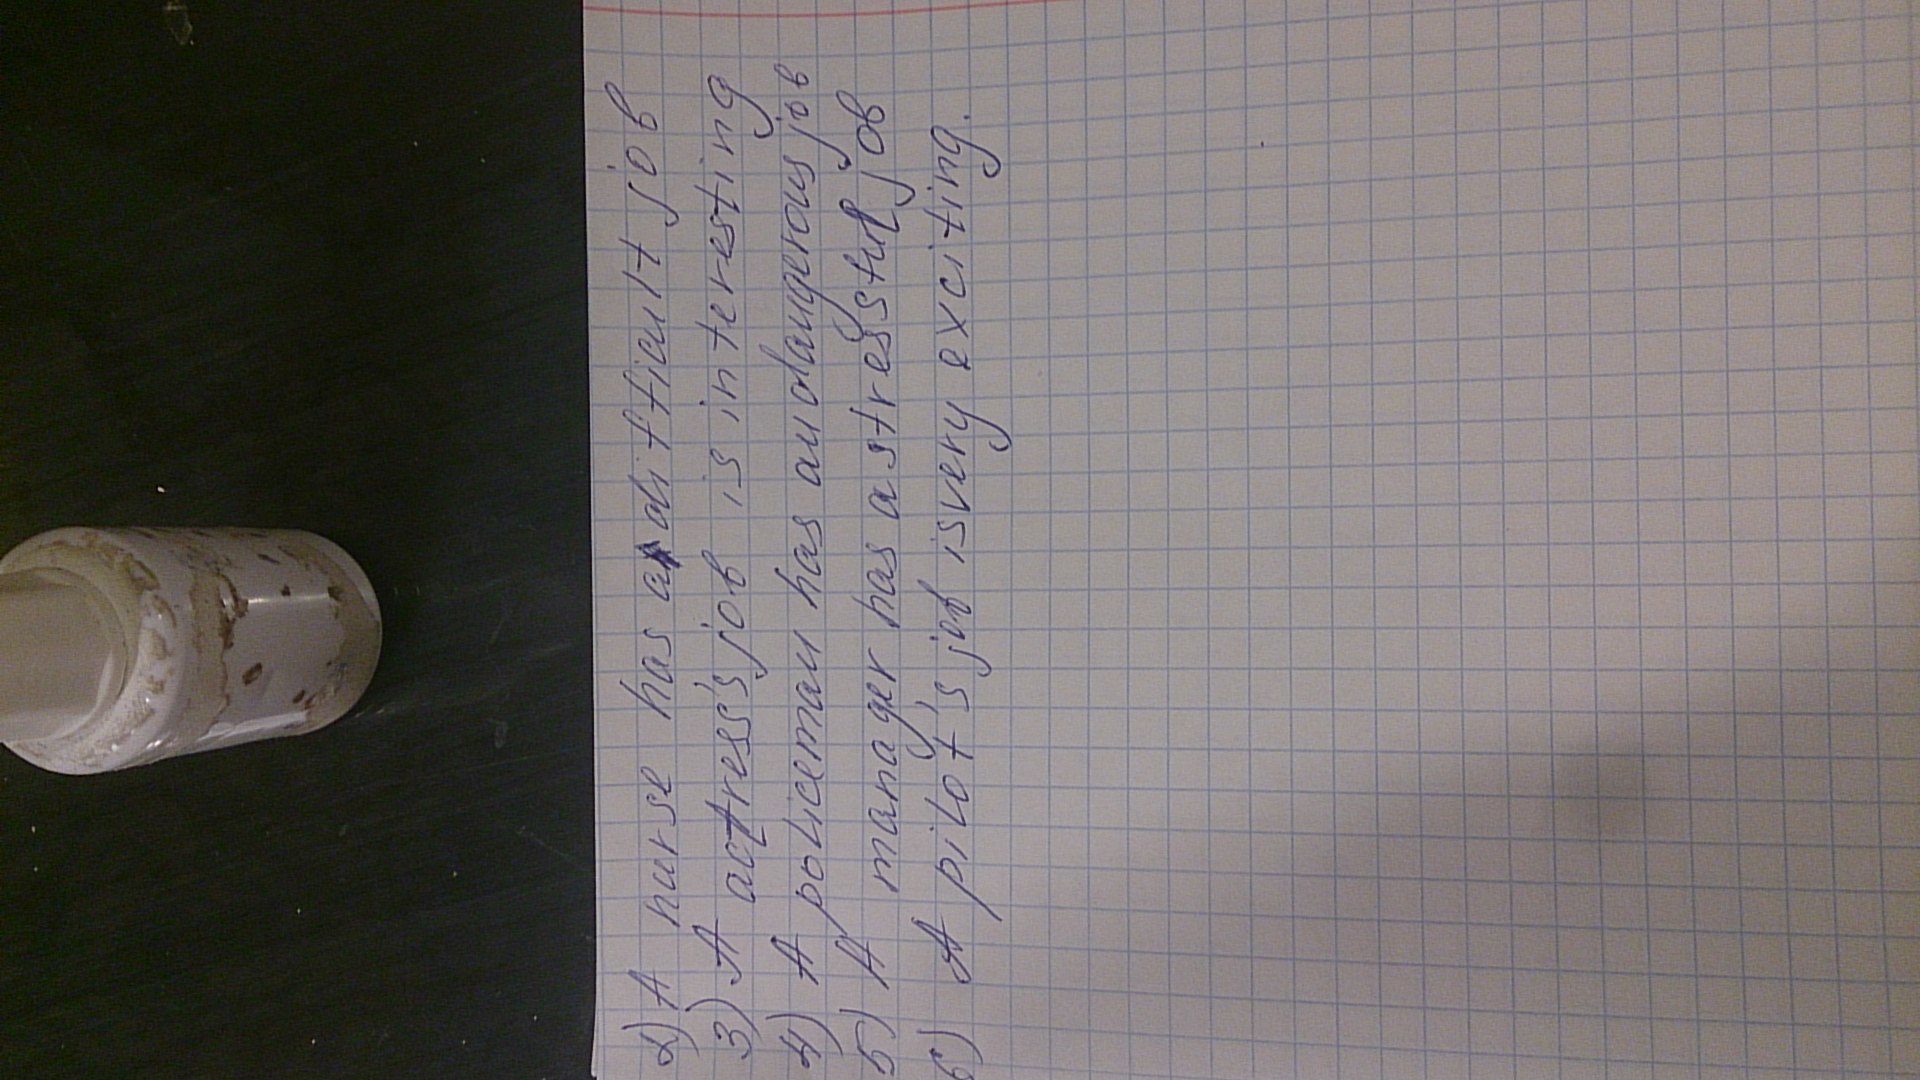 2) A nurse has a difficult job
3) A actress's job is interesting
4) A policeman has an dangerous job
5) A manager has a stressful job
6) A pilot's job is very exciting.